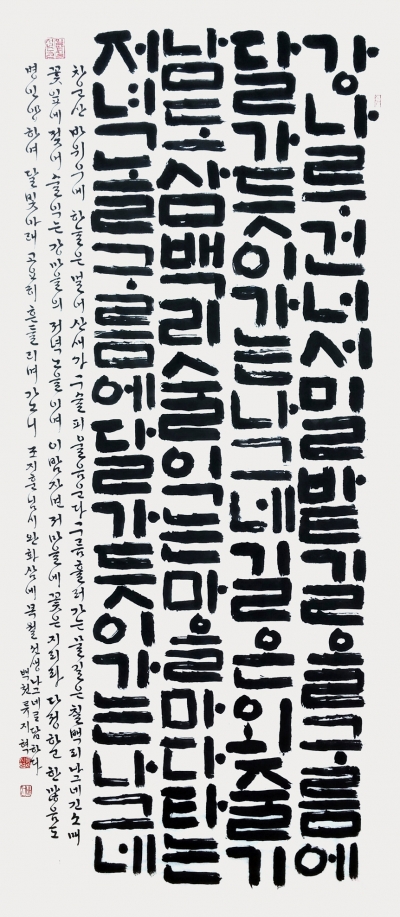 강나루건너서밀밭길을구름에
달가듯이가는나그네길은외줄기
남도삼백리술익는마을마다타는
저녁노을구름에달가듯이가는나그네
차운산 바위 우에 하늘은 멀어 산새가 구슬피 울음운다 구름 흘러가는 물길은 칠백리 나그네 긴 소매
꽃잎에 젖어 술익는 강마을의 저녁노을이여 이 밤 자면 저 마을에 꽃은 지리라 다정하고 한 많음도
병인양 하여 달빛아래 고요히 흔들리며 가노니 조지훈님 시 완화삼에 목월 선생 나그네로 답하다
류지혁